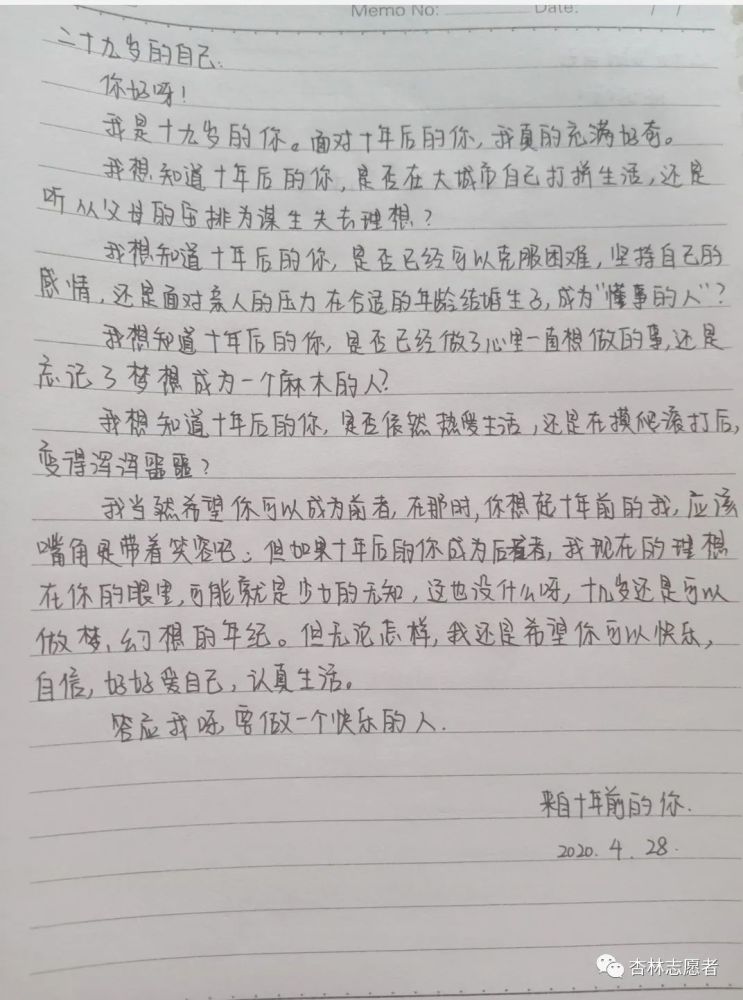 Memo No:
Date: / /
二十九岁的自己:
你好呀!
我是十九岁的你。面对十年后的你,我真的充满好奇。
我想知道十年后的你,是否在大城市自己打拼生活,还是
听从父母的安排为谋生失去理想?
我想知道十年后的你,是否已经可以克服困难,坚持自己的
感情,还是面对亲人的压力在合适的年龄结婚生子,成为"懂事的人"?
我想知道十年后的你,是否已经做了心里一直想做的事,还是
忘记了梦想成为一个麻木的人?
我想知道十年后的你,是否依然热爱生活,还是在摸爬滚打后,
变得浑浑噩噩?
我当然希望你可以成为前者,在那时,你想起十年前的我,应该
嘴角是带着笑容吧;但如果十年后的你成为后者,我现在的理想
在你的眼里,可能就是少女的无知,这也没什么呀,十九岁还是可以
做梦、幻想的年纪。但无论怎样,我还是希望你可以快乐,
自信,好好爱自己,认真生活。
答应我呀,要做一个快乐的人.
来自十年前的你.
2020.4.28.
杏林志愿者